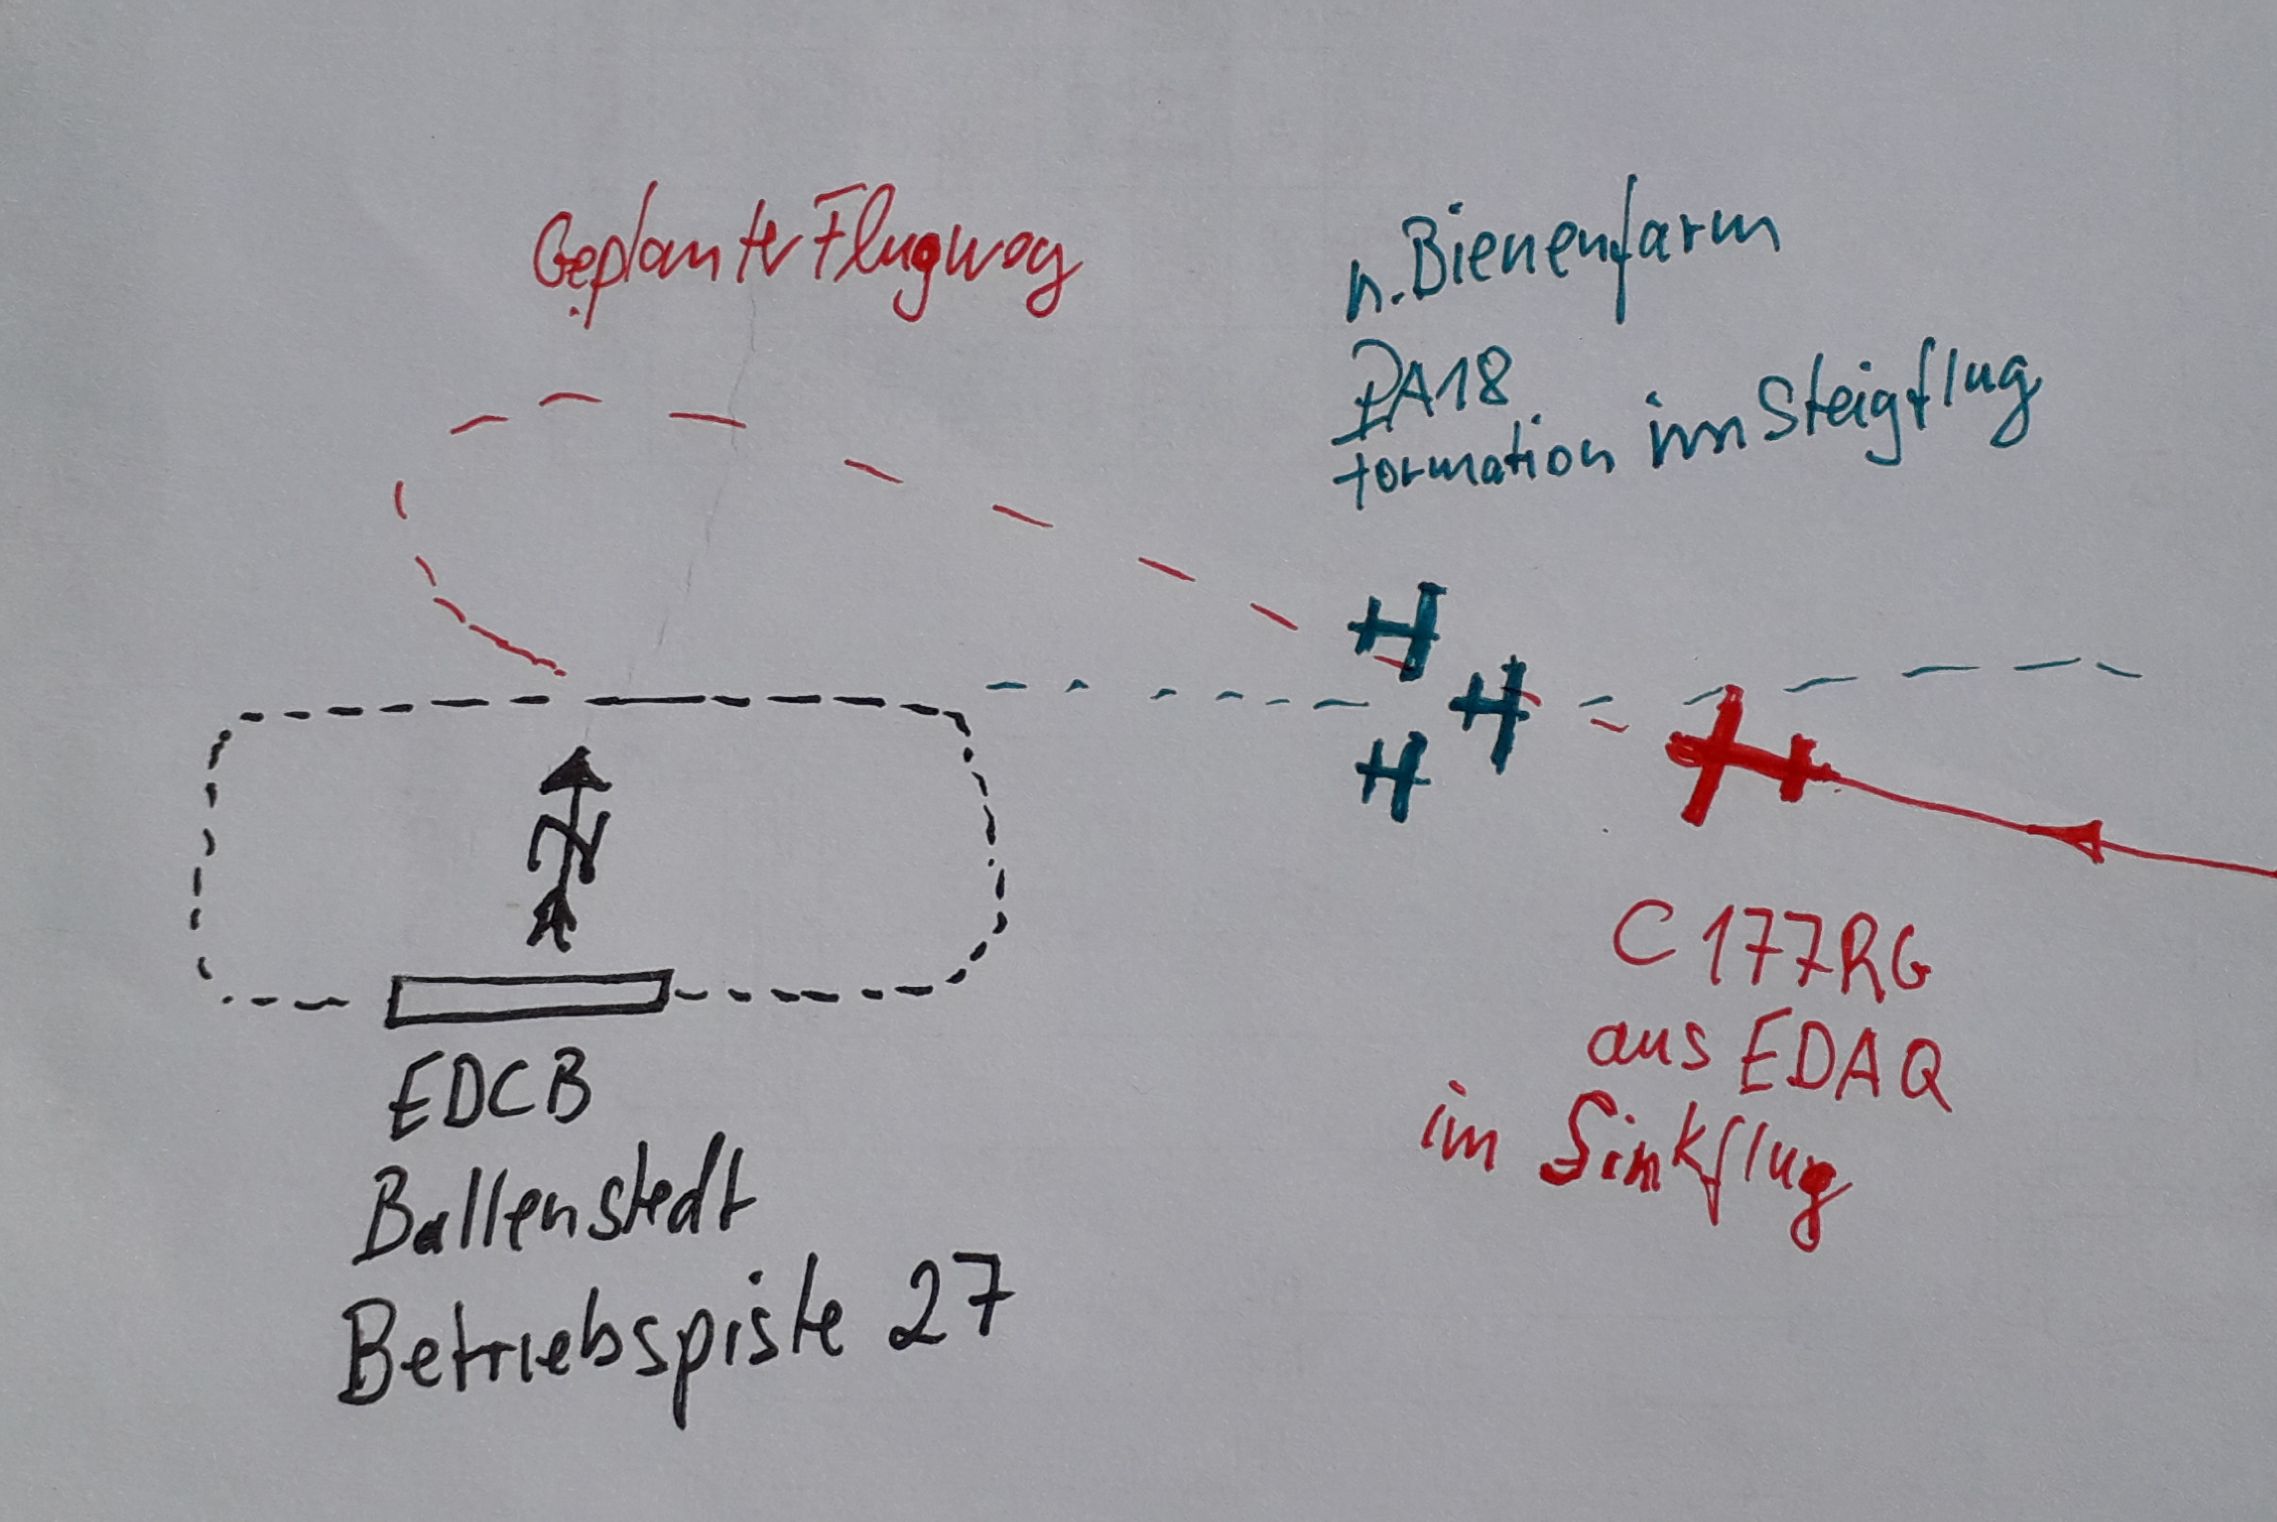 Geplanter Flugweg
n. Bienenfarm
PA18
formation im Steigflug
N
C177RG
aus EDAQ
im Sinkflug
EDCB
Ballenstedt
Betriebspiste 27